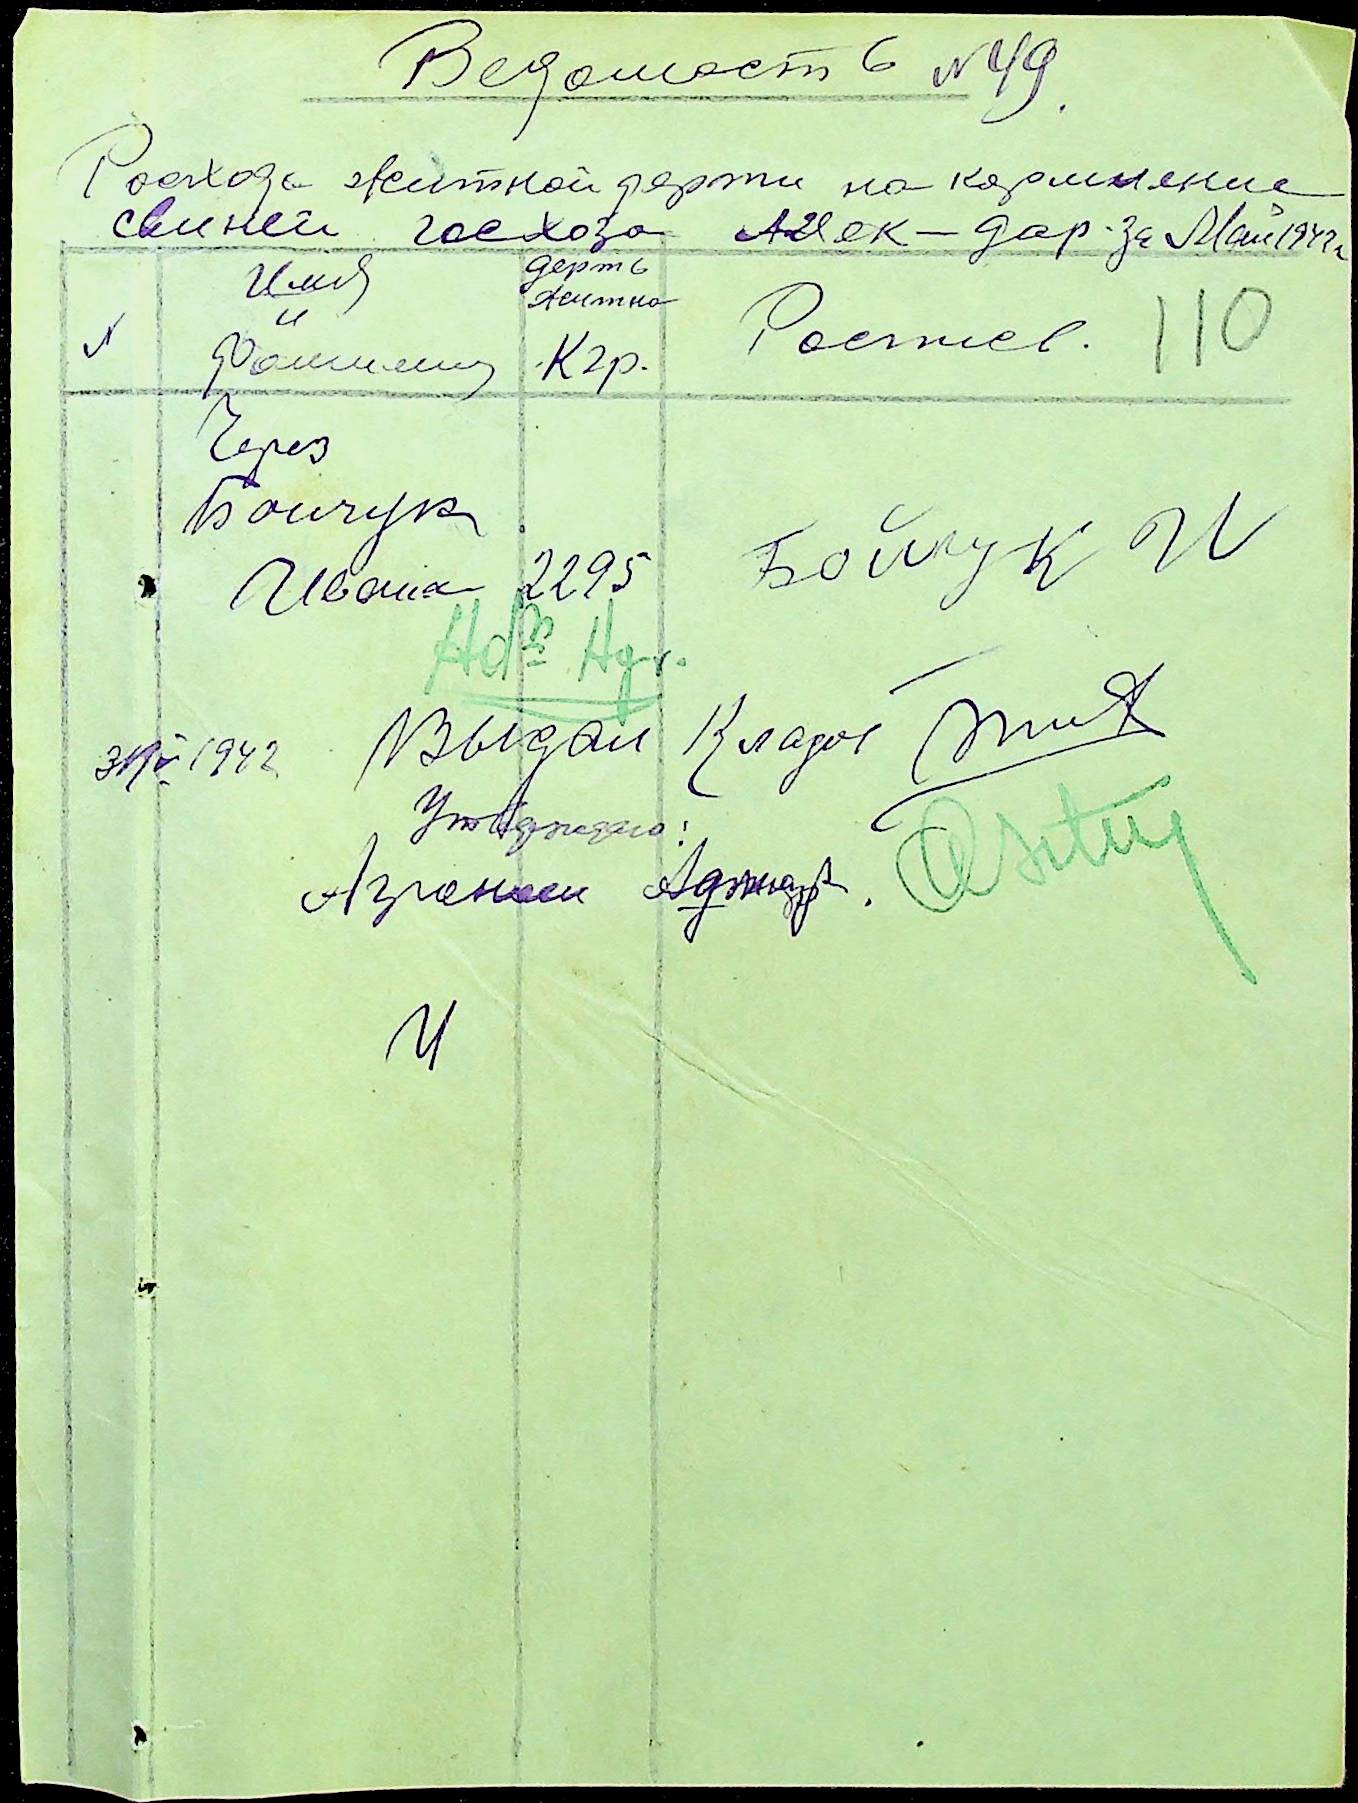 Ведомость №49.
Росхода житной дерти на кормление
свиней госхоза Аяек-дар. за Май 1942 г
№ Имя и Фамилия дерть житна Кгр. Роспись. 110
Через
Бойчука
Ивана 2295 Бойчук И
31/V 1942 Выдал Кладов
Утверждаю:
Агроном
И